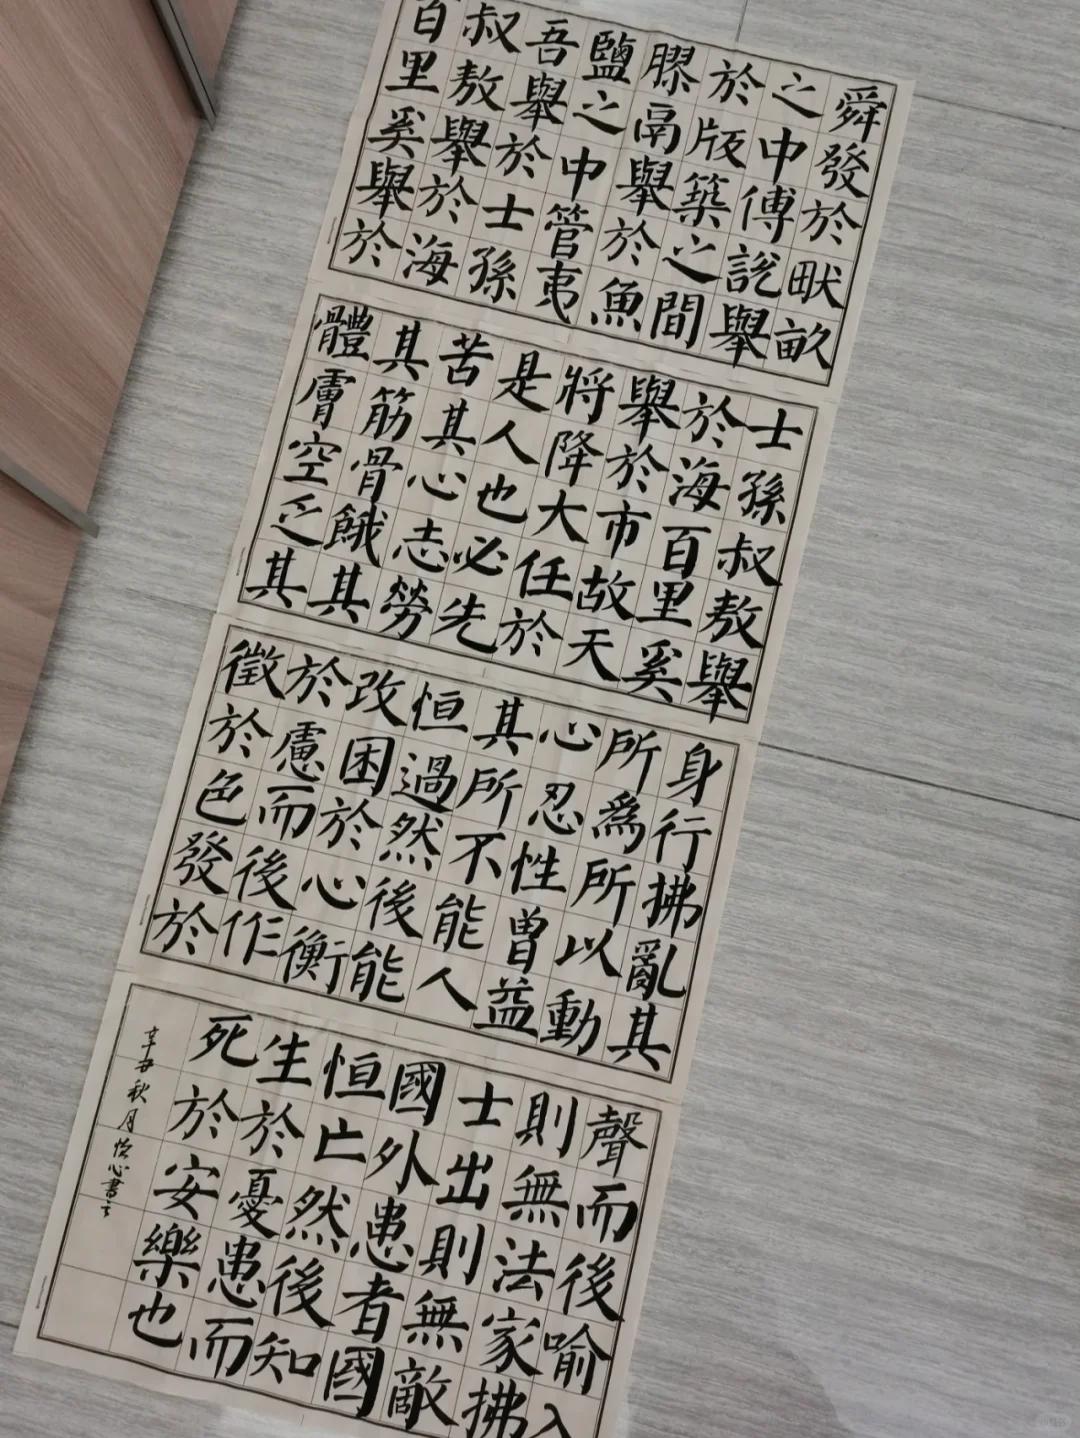 舜發於畎畝
之中傅説舉
於版築之間
膠鬲舉於魚
鹽之中管夷
吾舉於士孫
叔敖舉於海
百里奚舉於
士孫叔敖舉
於海百里奚
舉於市故天
將降大任於
是人也必先
苦其心志勞
其筋骨餓其
體膚空乏其
身行拂亂其
所爲所以動
心忍性曾益
其所不能人
恒過然後能
改困於心衡
於慮而後作
徵於色發於
聲而後喻入
則無法家拂
士出則無敵
國外患者國
恒亡然後知
生於憂患而
死於安樂也
辛丑秋月心書